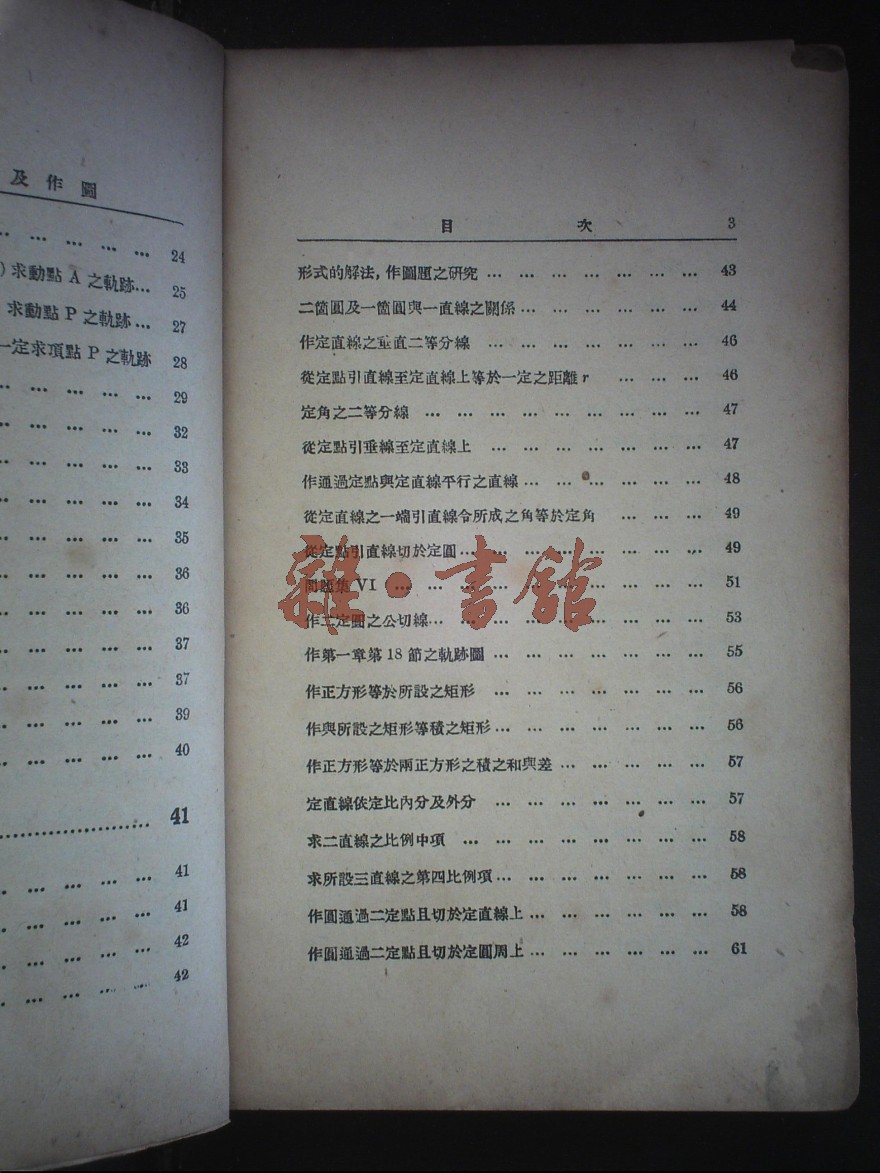 及作圖
… … … … … 24
)求動點 A 之軌跡… 25
求動點 P 之軌跡… 27
一定求頂點 P 之軌跡 28
… … … … … 29
… … … … … 32
… … … … … 33
… … … … … 34
… … … … … 35
… … … … … 36
… … … … … 36
… … … … … 37
… … … … … 37
… … … … … 39
… … … … … 40
………………… 41
… … … … … 41
… … … … … 41
… … … … … 42
… … … … … 42
目 次 3
形式的解法,作圖題之研究 … … … … … … … 43
二箇圓及一箇圓與一直線之關係… … … … … … 44
作定直線之垂直二等分線 … … … … … … … 46
從定點引直線至定直線上等於一定之距離 r … … … 46
定角之二等分線 … … … … … … … … … 47
從定點引垂線至定直線上 … … … … … … … 47
作通過定點與定直線平行之直線… … … … … … 48
從定直線之一端引直線令所成之角等於定角 … … … 49
從定點引直線切於定圓… … … … … … … … 49
問題集 VI … … … … … … … … … … 51
作二定圓之公切線… … … … … … … … … 53
作第一章第 18 節之軌跡圖 … … … … … … … 55
作正方形等於所設之矩形 … … … … … … … 56
作與所設之矩形等積之矩形… … … … … … … 56
作正方形等於兩正方形之積之和與差 … … … … … 57
定直線依定比內分及外分 … … … … … … … 57
求二直線之比例中項 … … … … … … … … 58
求所設三直線之第四比例項… … … … … … … 58
作圓通過二定點且切於定直線上… … … … … … 58
作圓通過二定點且切於定圓周上… … … … … … 61
雜·書館